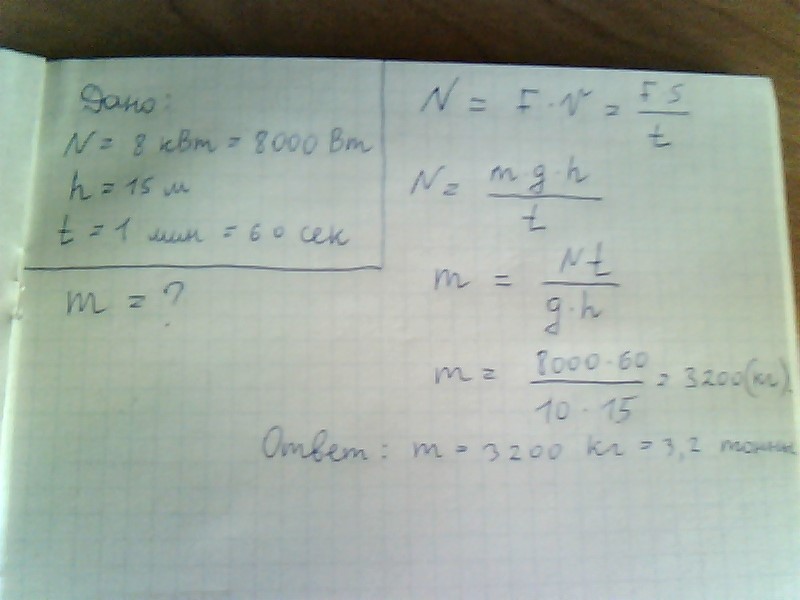 Дано:
N = 8 кВт = 8000 Вт
h = 15 м
t = 1 мин = 60 сек
m = ?
N = F · V = F S / t
N = m · g · h / t
m = N t / g · h
m = 8000 · 60 / 10 · 15 = 3200 (кг).
Ответ: m = 3200 кг = 3,2 тонны